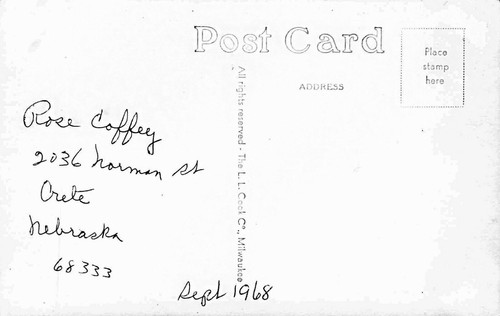 Post Card
Place
stamp
here
ADDRESS
All rights reserved - The L. L. Cook Co., Milwaukee
Rose Coffey
2036 Norman St
Crete
Nebraska
68333
Sept 1968